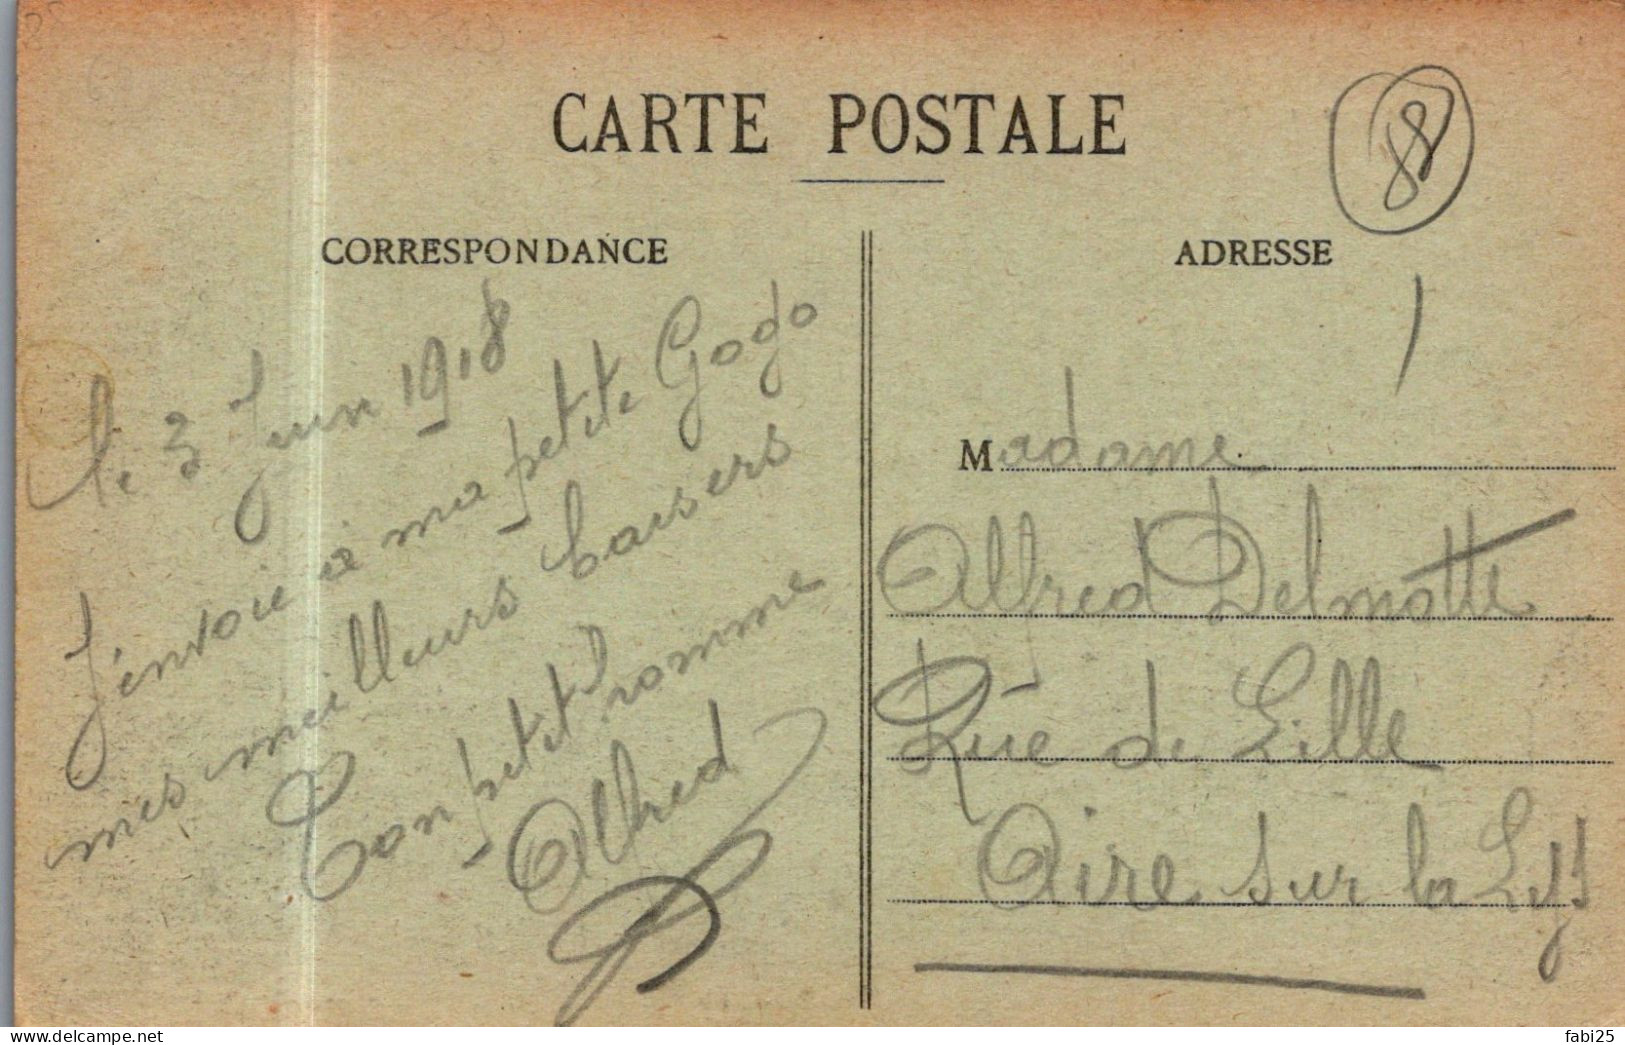 CARTE POSTALE
88
CORRESPONDANCE
le 3 Juin 1918
J'envoie à ma petite Gogo
mes meilleurs baisers
Ton petit homme
Alfred
ADRESSE
Madame
Alfred Delmotte
Rue de Lille
Aire sur la Lys
www.delcampe.net
fabi25